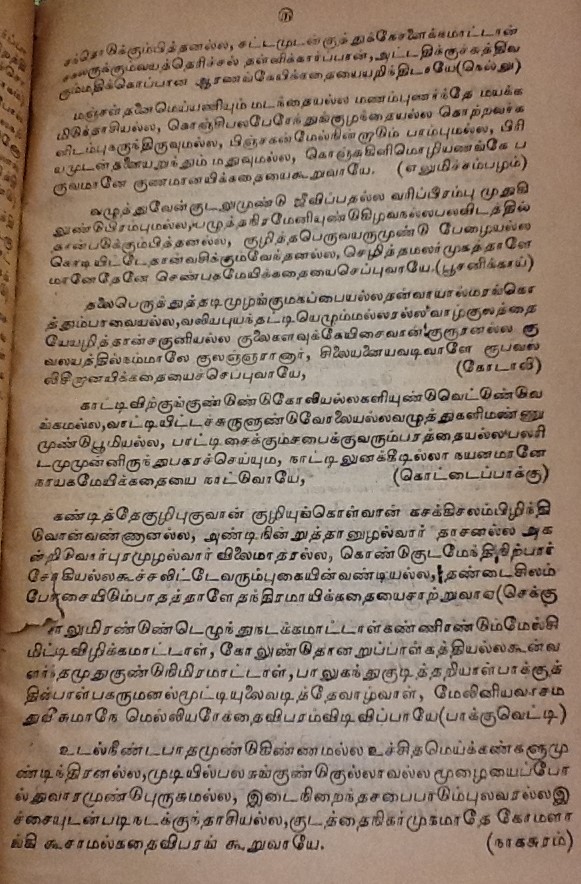 ௫
சுந்தொடுக்கும்பித்தனல்ல, சட்டமுடன்குத்துக்கேசளைக்கமாட்டான்
சகலருக்கும்வயத்தெரிச்சல் தன்னிக்கார்ப்பான், அட்டதிக்குச்சுத்திவ
ரும்மதிக்கொப்பான ஆரணங்கேயிக்கதையையறிந்திடாயே(நெல்லு)
மஞ்சள்தனைமெய்யணியும் மடந்தையல்ல மணம்புணர்ந்தே மயக்க
மிடுக்தாசியல்ல, கொஞ்சிபலபேரேந்துங்குழந்தையல்ல கொற்றவர்க
ளிடம்புகுந்திருவுமல்ல, பிஞ்சகன்மேல்நின்றாடும் பாம்புமல்ல, பிரி
யமுடன்தனையறுந்தும் மதுவுமல்ல, கொஞ்சுகினிமொழியணங்கே ப
ருவமானே குணமானயிக்கதையைகூறுவாயே. (எலுமிச்சம்பழம்)
வழுத்துவேன்குடலுமுண்டு ஜீவிப்பதல்ல வரிப்பிரம்பு முதுகி
லுண்டுபிரம்புமல்ல,பழுத்தநிரமேனியுண்டுகிழவநல்லபலவிடத்தில்
தான்படுக்கும்பித்தனல்ல, குழித்தபெருவயருமுண்டு பேழையல்ல
கொடியிட்டேதான்வசிக்கும்வேந்தனல்ல, செழித்தமலர்முகத்தாளே
மானேதேனே செண்பதமேயிக்கதையைசெப்புவாயே.(பூசனிக்காய்)
தலைபெருத்துத்தடிமுழங்குமகப்பையல்லதன்வாயால்மரங்கொ
த்தும்பாவையல்ல,வலியபுயந்தட்டியெழும்மல்லரல்லவாழ்குலத்தை
யேயழித்தான்சகுனியல்ல குலைகளவுக்கேயிசைவான்குரூரனல்ல கு
வலயத்தில்நம்மாலே குலஞ்ஞரானார், சிலையனையவடிவாளே ரூபவல
லிசிறனயிக்கதையைச்செப்புவாயே, (கோடாலி)
காட்டிவிற்குங்குண்டுண்டுகோலியல்லகளியுண்டுவெட்டுண்டுவ
ங்கமல்ல,வாட்டியிட்டச்சுருளுண்டுவோலையல்லவழுத்துகளிமண்ணு
முண்டுபூமியல்ல, பாட்டிசைக்கும்சபைக்குவரும்பரத்தையல்லபலரி
டமுமுன்னிருந்துபகரச்செய்யும, நாட்டிலுனக்கீடில்லா நயனமானே
நாயகமேயிக்கதையை நாட்டுவாயே, (கொட்டைப்பாக்கு)
கண்டித்தேகுழிபுகுவான் குழியுங்கொள்வான் கசக்கிசலம்பிழிந்தி
டுவான்வண்ணனல்ல, அண்டிநின்றுத்தானுழல்வார் தாசனல்ல அக
ன்றிடுவார்புரமுழல்வார் விலைமாதரல்ல, கொண்டுகுடமேந்திநிற்பார்
சேடியல்லகூச்சலிட்டேவரும்புகையின்வண்டியல்ல, தண்டைசிலம்
பேசையிடும்பாதத்தாளேதந்திரமாயிக்கதையைசாற்றுவாயே(செக்கு
நாலுமிரண்டுண்டெழுந்துநடக்கமாட்டாள்கண்ணிரண்டும்மேல்சி
மிட்டிவிழிக்கமாட்டாள், கோலுண்டுதானறுப்பாள்கத்தியல்லகூன்வ
ளர்ந்தமுதுகுண்டுநிமிரமாட்டாள்,பாலுகந்துகுடித்தறியாள்பாக்குத்
தின்பாள்பகருமனல்மூட்டியுலைவடித்தேவாழ்வாள், மேலினியவாசம
துவீசுமாநே மெல்லியரேகதைவிபரம்விடிவிப்பாயே(பாக்குவெட்டி)
உடல்நீண்டபாதமுண்டுகிண்ணமல்ல உச்சிதமெய்க்கண்களுமு
ண்டிந்திரனல்ல,முடியில்பலசுங்குண்டுகுல்லாவல்ல மூழையைப்போ
ல்துவாரமுண்டுபுருசுமல்ல, இடைநிறைந்தசபைபாடும்புலவரல்லஇ
ச்சையுடன்படிநடக்குந்தாசியல்ல,குடத்தைநிகர்முகமாதே கோமளா
ங்கி கூசாமல்கதைவிபரங் கூறுவாயே. (நாகசுரம்)